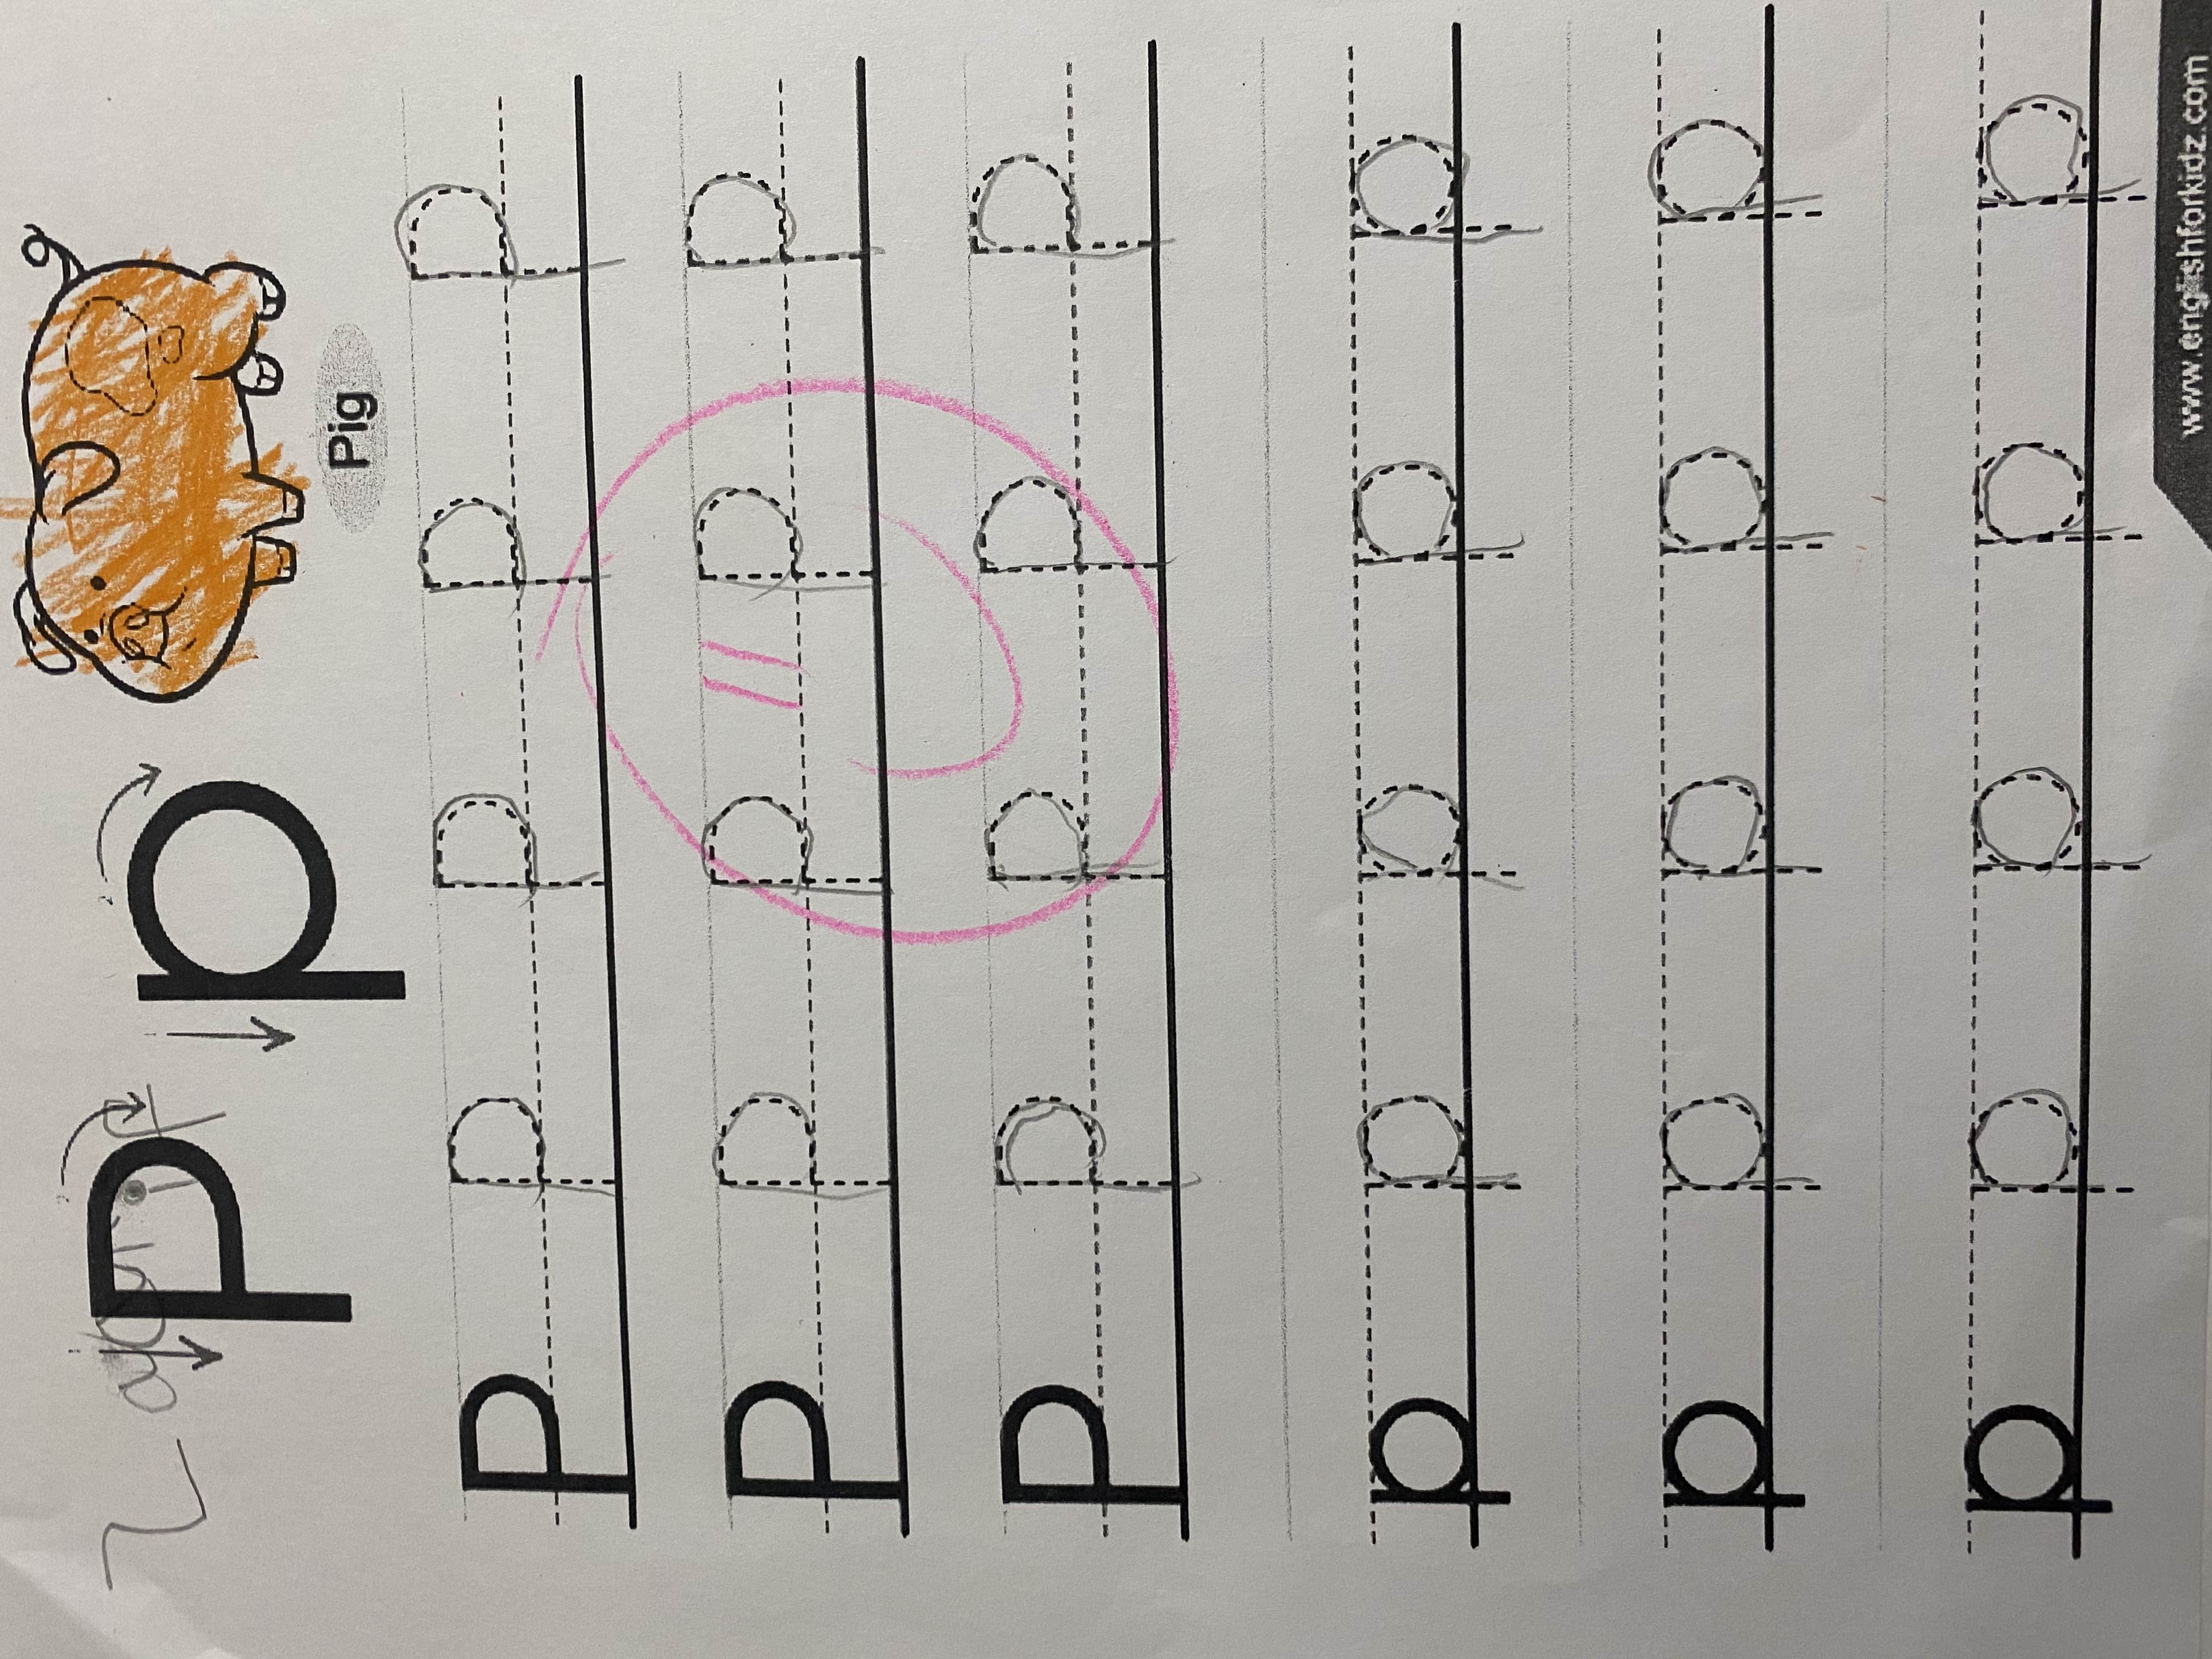 P p
Pig
P P P P P
P P P P P
P P P P P
p p p p p
p p p p p
p p p p p
www.englishforkidz.com